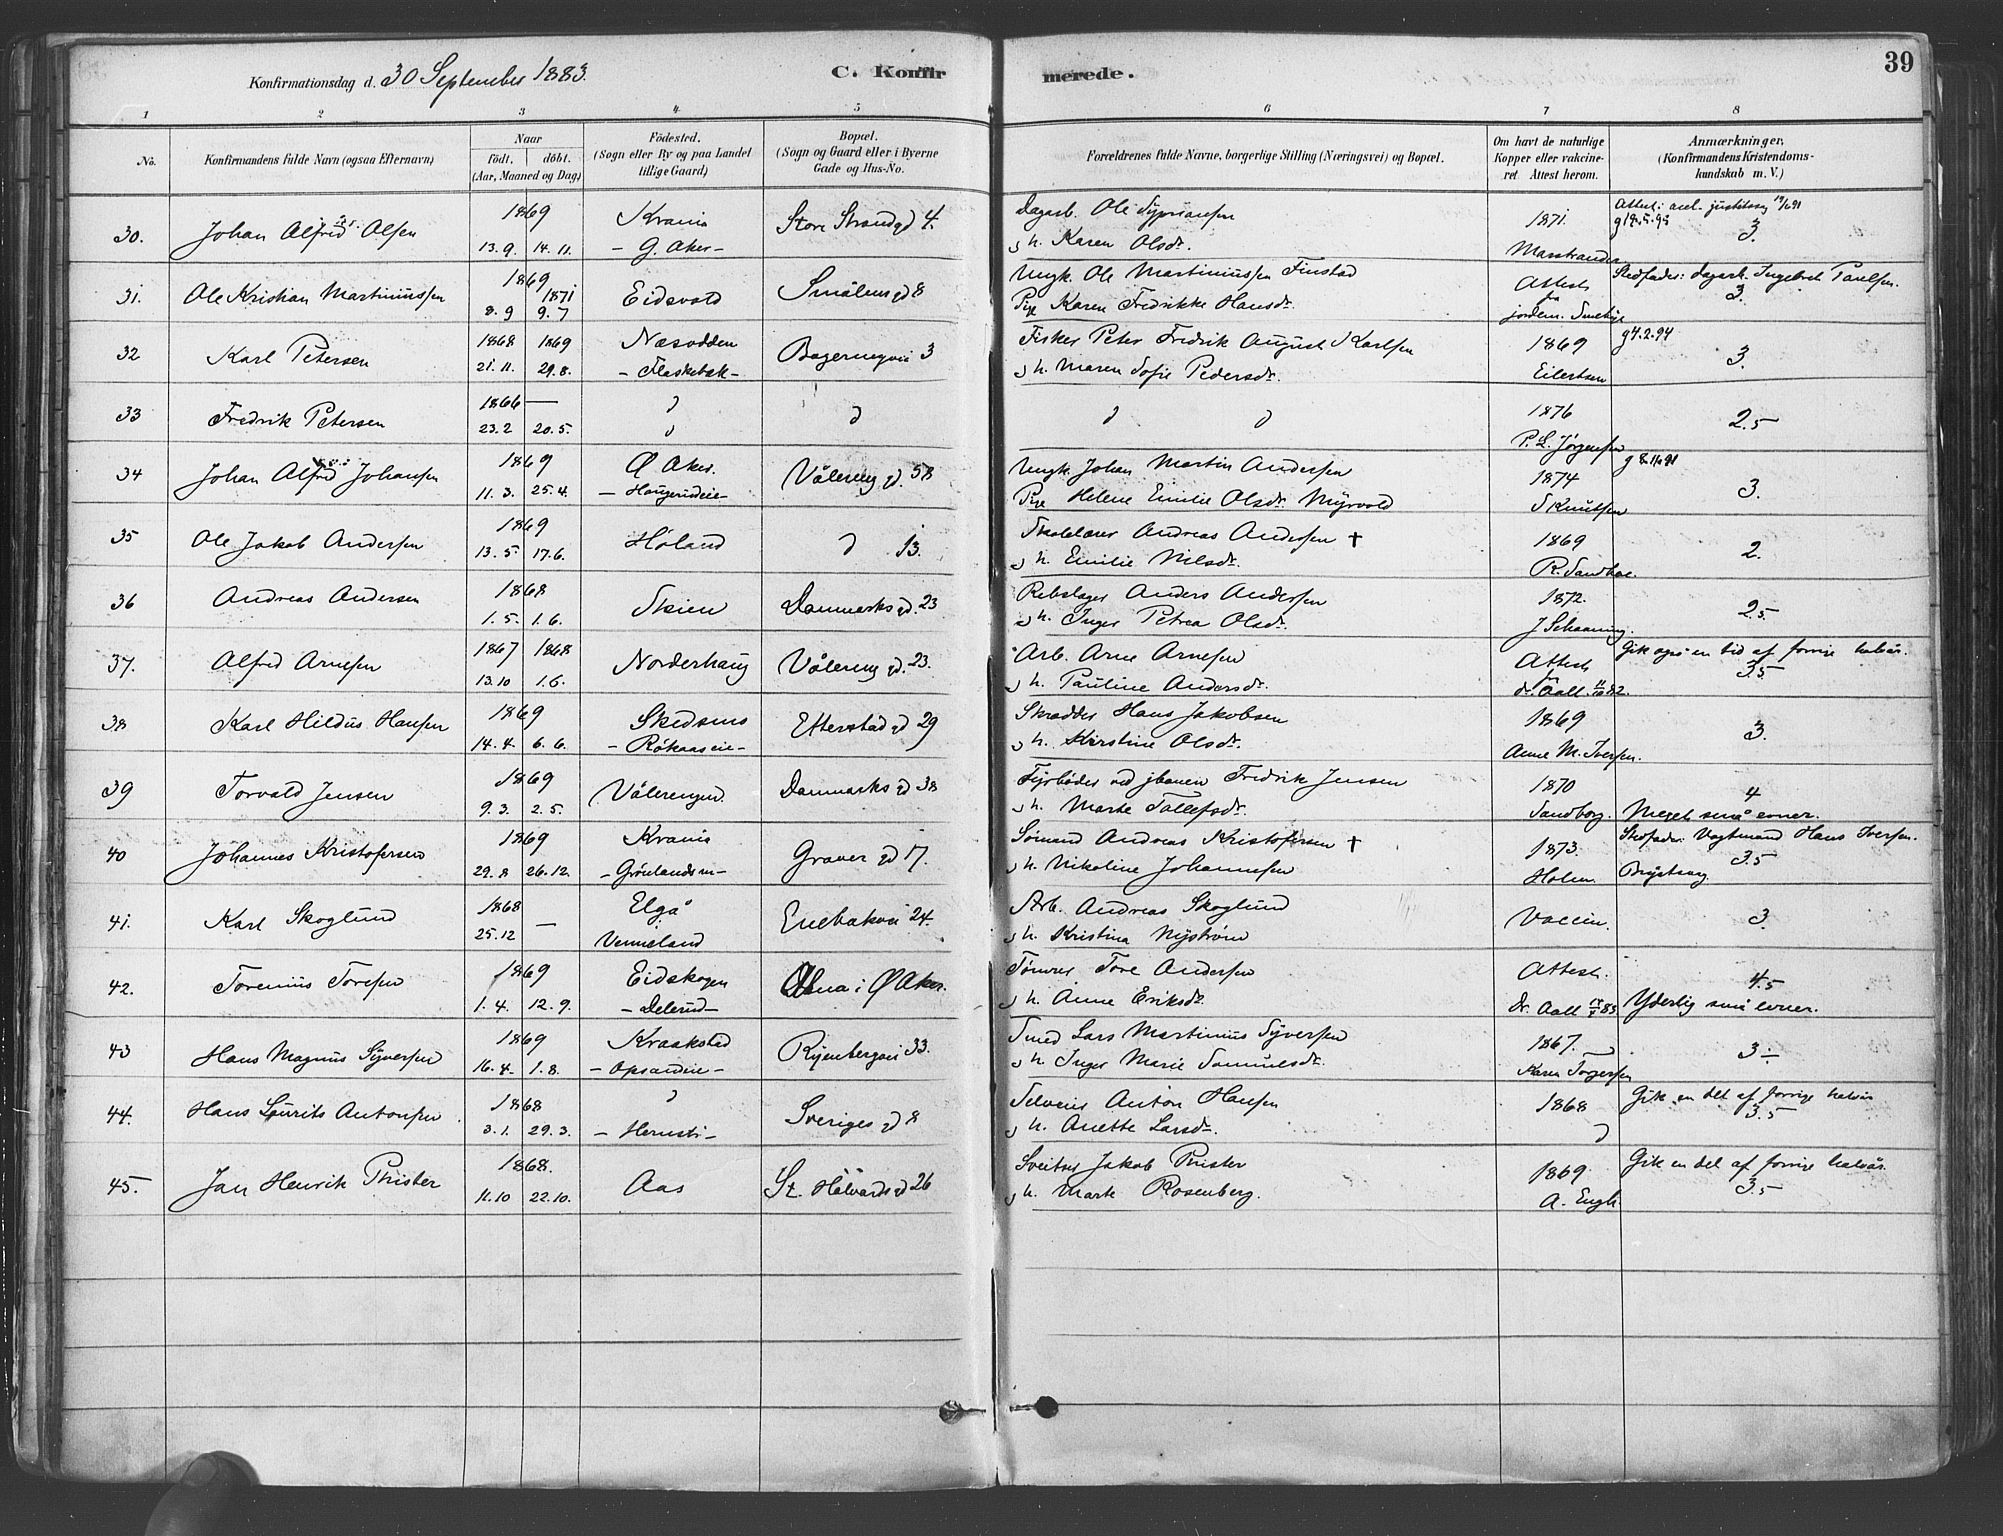 Konfirmationsdag d. 30 September 1883.
C. Konfirmerede.
39
1 2 3 4 5 6 7 8
No.
Konfirmandens fulde Navn (ogsaa Efternavn)
Naar
födt. döbt.
(Aar, Maaned og Dag)
Födested.
(Sogn eller By og paa Landet
tillige Gaard)
Bopæl.
(Sogn og Gaard eller i Byerne
Gade og Hus-No.
Forældrenes fulde Navne, borgerlige Stilling (Næringsvei) og Bopæl.
Om havt de naturlige
Kopper eller vakcine-
ret Attest herom.
Anmærkninger.
(Konfirmandens Kristendoms-
kundskab m. V.)
30. Johan Alfred Olsen 1869 13.9. 14.11. Krania - G. Aker - Store Strandgd 4.
Dagarb. Ole Syprianssen
h. Karen Olsdr. 1871. Marstrander 3.
31. Ole Kristian Martiniussen 1869 8.9 1871 9.7 Eidsvold Smålensgd 8
Ungk. Ole Martiniussen Finstad
Pige Karen Fredrikke Hansdr. Attest fra jordem. Stedfader: dagarb. Ingebret Paulsen.
3.
32 Karl Petersen 1868 21.11. 1869 29.8. Næsodden - Flaskebæk - 3
Fisker Peter Fredrik August Karlsen
h. Maren Sofie Pedersdr. 1869 Eilertsen g 4.2.94
3.
33 Fredrik Petersen 1866 — 23.2 20.5.
1876 P. L. Jørgensen 2.5
34 Johan Alfred Johansen 1869 11.3. 25.4. Ø Aker. - Haugerudeie - Vålereng gd. 58
Ungk. Johan Martin Andersen
Pige Helene Emilie Olsdr. Myrvold 1874 S Knutsen 3.
35 Ole Jakob Andersen 1869 13.5. 17.6. Høland 13.
Skolelærer Andreas Andersen †
h. Emilie Nilsdr. 1869 2.
36 Andreas Andersen 1868 1.5. 1.6. Skien Danmarks gd 23
Rebslager Anders Andersen
h. Inger Petrea Olsdr. 1872. J Schaaning. 2.5
37. Alfred Arnesen 1867 13.10 1868 1.6. Norderhaug Vålereng gd. 23.
Arb. Arne Arnesen
h. Pauline Andersdr. Attest fra dr. Aall Gik også en tid af forrige halvår.
3.5
38 Karl Hildus Hansen 1869 14.4. 6.6. Skedsmo - Røkaaseie - Etterstad gd 29
Skrædder Hans Jakobsen
h. Kirstine Olsdr. 1869 Anne M. Iversen. 3.
39 Torvald Jensen 1869 9.3. 2.5. Vålerengen. Danmarks gd 38
Fyrbøder ved jbanen Fredrik Jensen
h. Marte Tollefsdr. 1870 Sandborg. 4
Meget små evner.
40 Johannes Kristofersen 1869 29.8 26.12. Krania - Grønlandsm - Graver gd 17.
Sømand Andreas Kristofersen †
h. Nikoline Johannesen 1873. Holm Stedfader: Vogtmand Hans Iversen.
3.5
41. Karl Skoglund 1868 25.12 — Elgå Vermeland Enebakvei 24.
Arb. Andreas Skoglund
h. Kristina Nyström Vaccin. 3.
42. Torenius Toresen 1869 1.4. 12.9. Eidskogen - Delerud - Alna i Ø Aker.
Tømrer Tore Andersen
h. Anne Eriksdr. Attest. Dr. Aall 4.5
Yderlig små evner.
43 Hans Magnus Syversen 1869 16.4. 1.8. Kraakstad - Opsandeie - Ryenbergvei 33.
Smed Lars Martinius Syversen
h. Inger Marie Samuelsdr. 1867. Karen Torgersen 3 -
44. Hans Laurits Antonsen 1868 3.1. 29.3. Sveriges gd 8
Selveier Anton Hansen
h. Anette Larsdr. 1868 Gik en del af forrige halvår
3.5
45. Jan Henrik Phister 1868. 11.10 22.10. Aas St. Halvards gd 26
Sveitser Jakob Phister
h. Marte Rosenberg. 1869 A. Engh. Gik en del af forrige halvår.
3.5